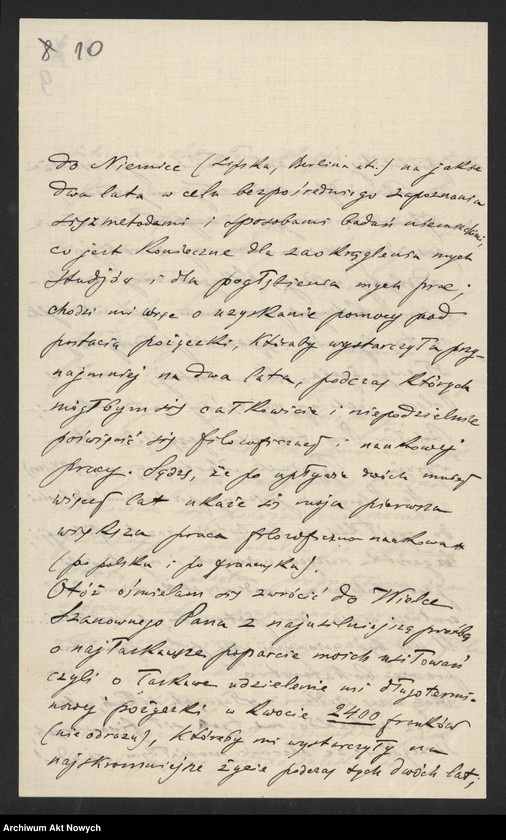 8 10
do Niemiec (Lipska, Berlina etc.) na jakie
dwa lata w celu bezpośredniego zapoznania
się z metodami i sposobami badań niemieckimi,
co jest konieczne dla zaokrąglenia mych
studjów i dla pogłębienia mych prac;
chodzi mi więc o uzyskanie pomocy pod
postacią pożyczki, któraby wystarczyła przy-
najmniej na dwa lata, podczas których
mógłbym się całkowicie i niepodzielnie
poświęcić się filozoficznej i naukowej
pracy. Sądzę, że po upływie dwóch mniej
więcej lat ukaże się moja pierwsza
większa praca filozoficzno naukowa
(po polsku i po francusku).
Otóż ośmielam się zwrócić do Wielce
Szanownego Pana z najusilniejszą prośbą
o najłaskawsze poparcie moich usiłowań
czyli o łaskawe udzielenie mi długotermi-
nowej pożyczki w kwocie 2400 franków
(nie odrazu), któreby mi wystarczyły na
najskromniejsze życie podczas tych dwóch lat;
Archiwum Akt Nowych